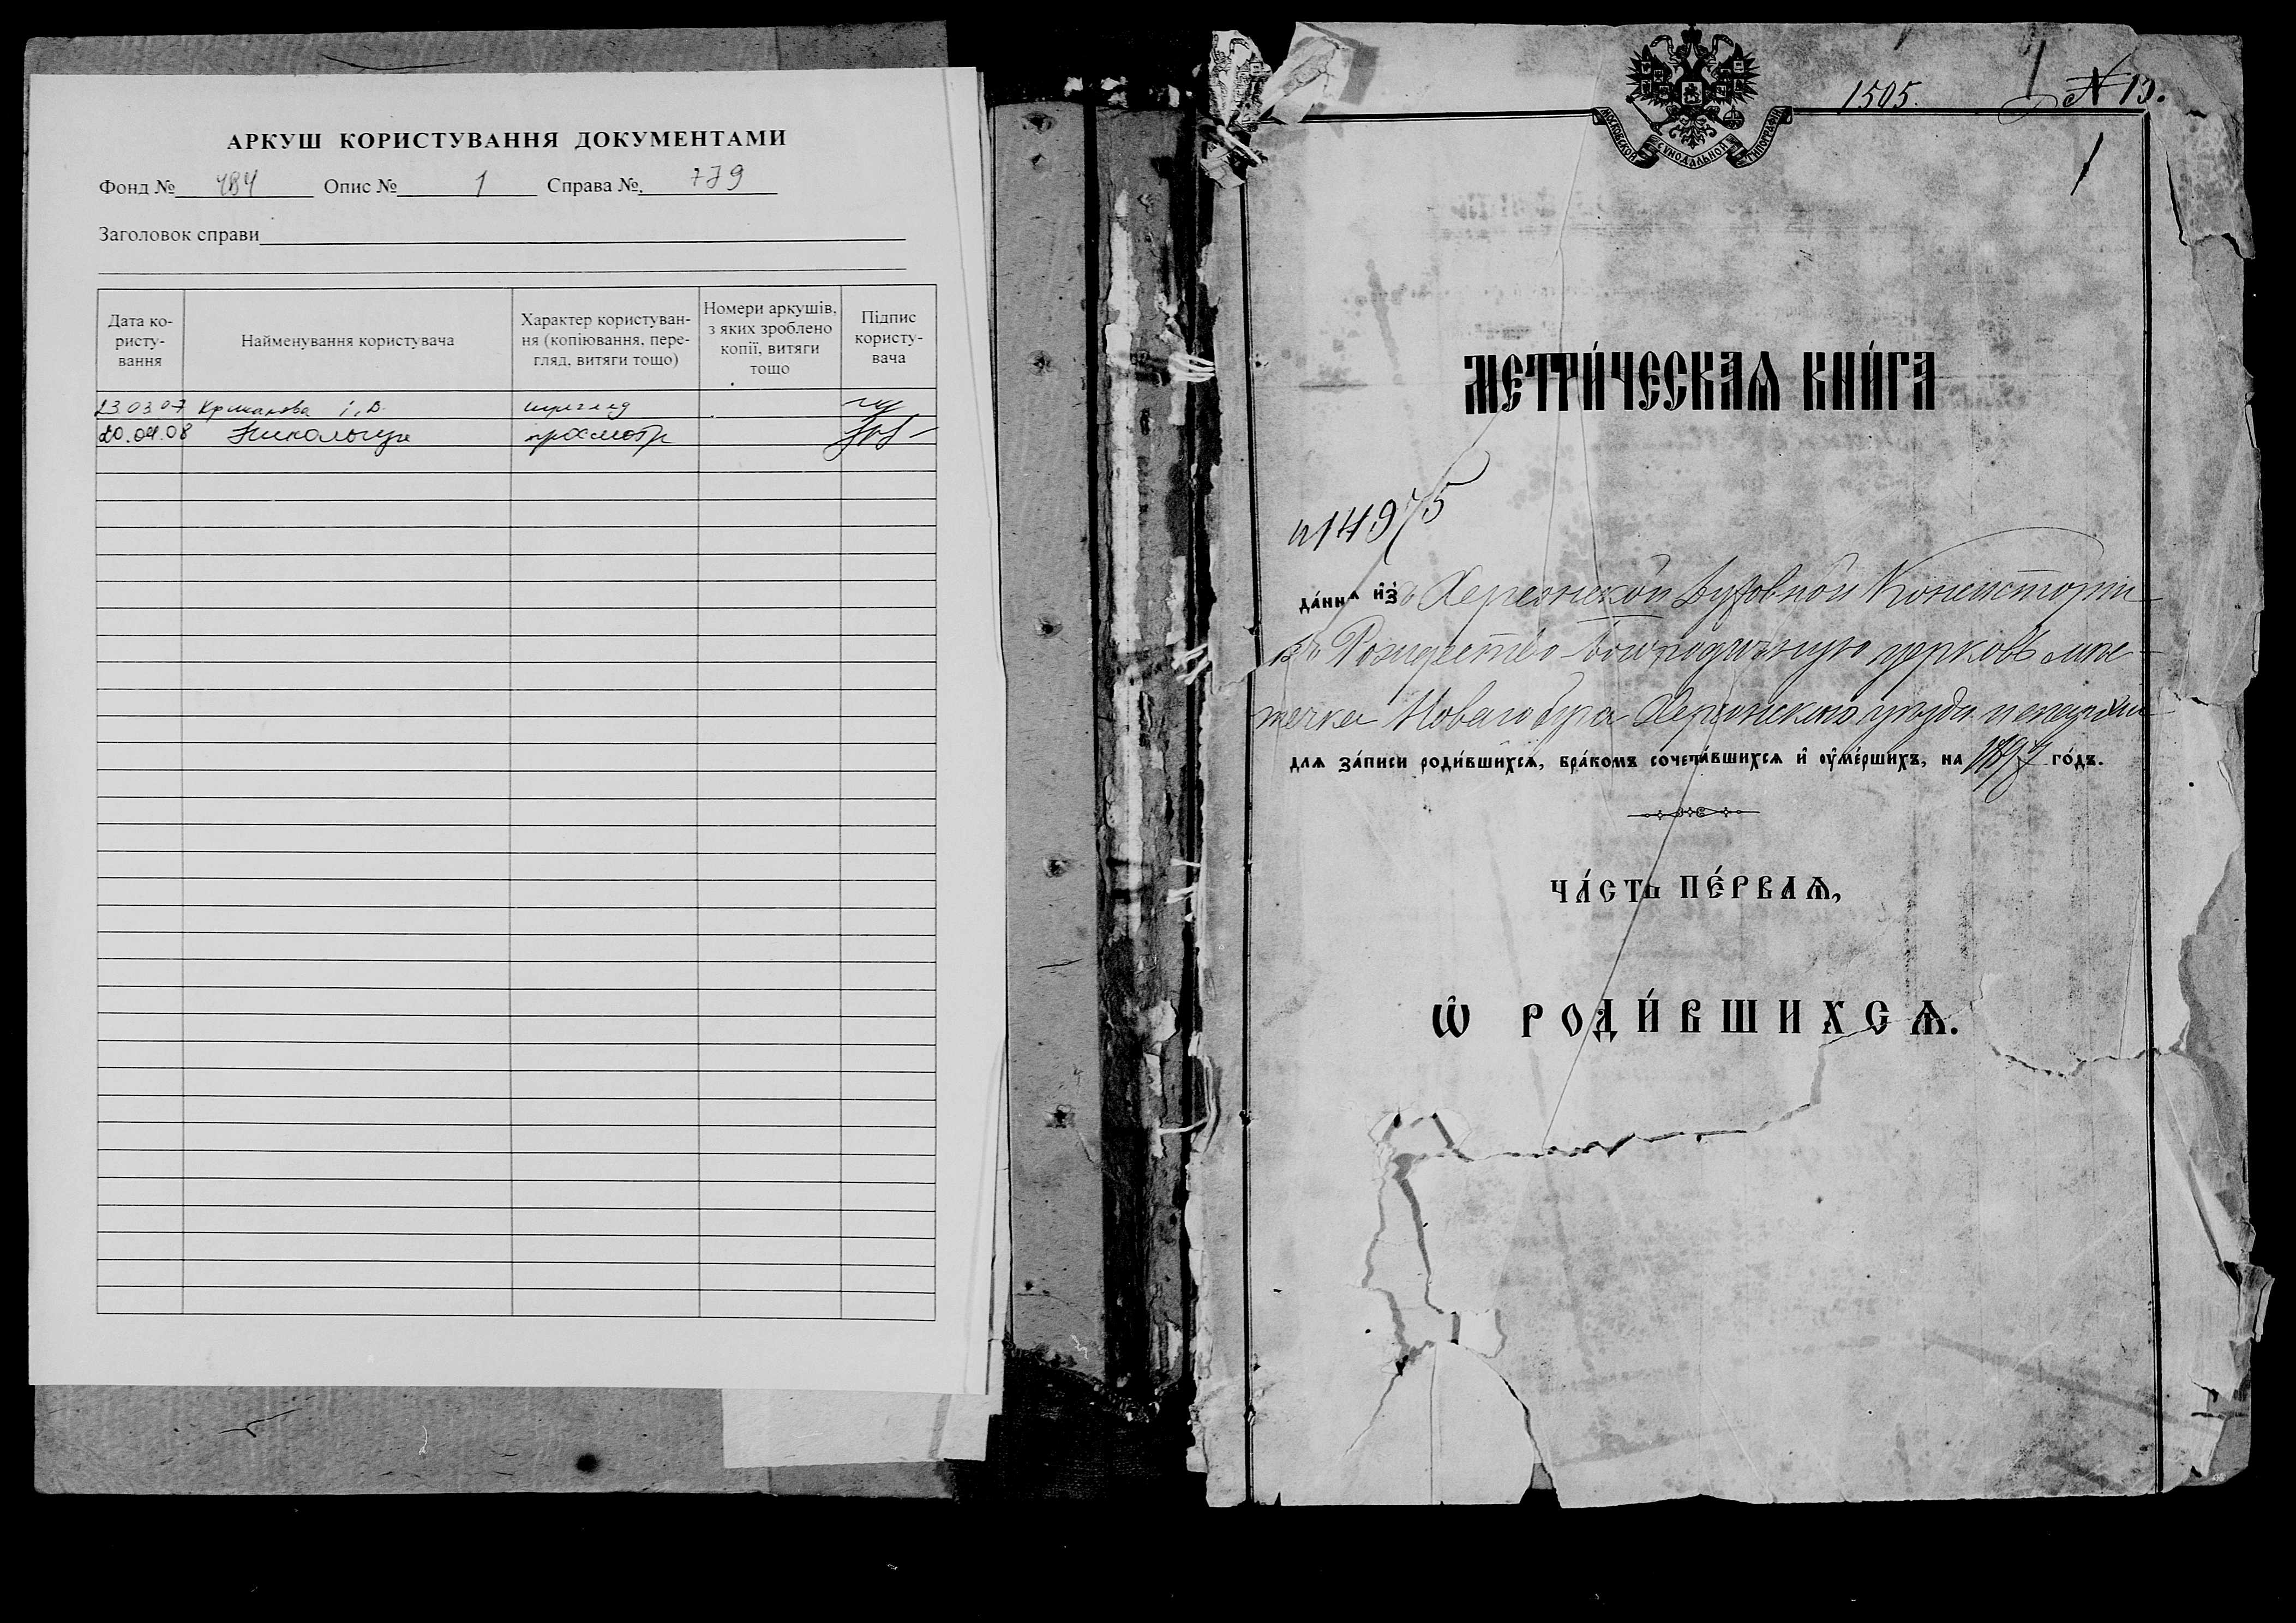 АРКУШ КОРИСТУВАННЯ ДОКУМЕНТАМИ
Фонд № 484 Опис № 1 Справа №. 779
Заголовок справи
Дата ко-
ристу-
вання
Найменування користувача
Характер користуван-
ня (копіювання, пере-
гляд, витяги тощо)
Номери аркушів,
з яких зроблено
копії, витяги
тощо
Підпис
користу-
вача
23.03.07 і.В. перегляд
20.04.08 просмотр
1505. № 13.
1
МОСКОВСКОЙ СѴНОДАЛЬНОЙ ТИПОГРАФІИ
МЕТРИ́ЧЕСКАѦ КНИ́ГА
n 14975
да́нна и҆зъ Херсонской Духовной Консисторіи
въ Рождество-Богородичную церковь мѣс-
течка Новаго Буга Херсонскаго уѣзда и епархіи
для за́писи роди́вшихсѧ, бра́комъ сочета́вшихсѧ и҆ ᲂу҆ме́ршихъ, на 1897 го́дъ.
ЧА́СТЬ ПЕ́РВАѦ,
Ѡ҆ РОДИ́ВШИХСѦ.